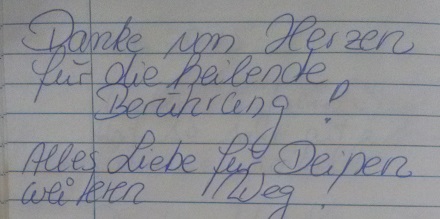 Danke von Herzen
für die heilende
Berührung!
Alles Liebe für Deinen
weiteren Weg